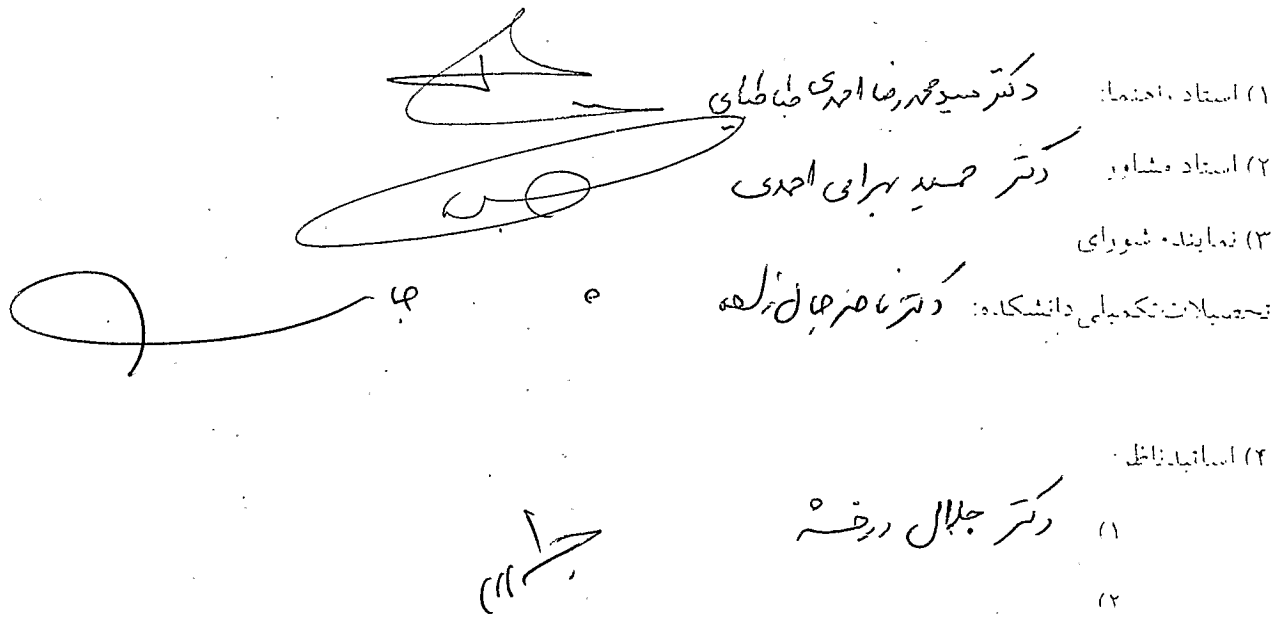 ۱) استاد راهنما: دکتر سید محمد رضا احمدی طباطبای
۲) استاد مشاور دکتر حمید بهرامی احمدی
۳) نماینده شورای
تحصیلات تکمیلی دانشکده: دکتر ناصر جمال زاده
۴) اساتید ناظر
۱) دکتر جلال درخشه
۲)